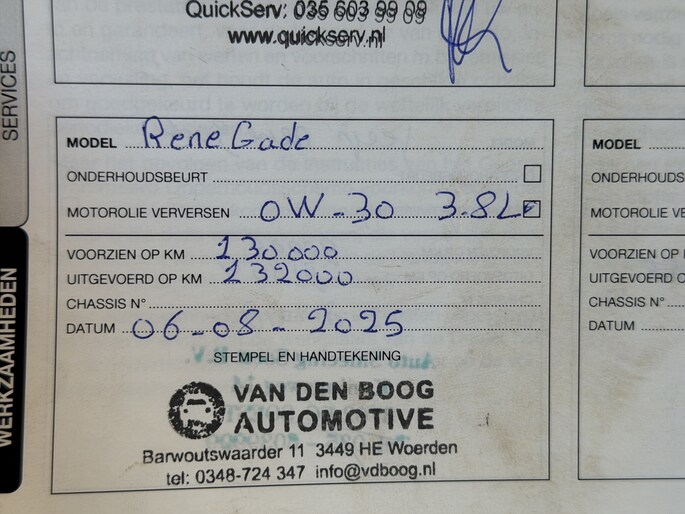 QuickServ: 035 603 99 09
www.quickserv.nl
SERVICES
WERKZAAMHEDEN
MODEL Rene Gade
ONDERHOUDSBEURT
MOTOROLIE VERVERSEN 0W-30 3.8L
VOORZIEN OP KM 130.000
UITGEVOERD OP KM 132000
CHASSIS N°
DATUM 06-08-2025
STEMPEL EN HANDTEKENING
VAN DEN BOOG
AUTOMOTIVE
Barwoutswaarder 11 3449 HE Woerden
tel: 0348-724 347 info@vdboog.nl
MODEL
ONDERHOUDS
MOTOROLIE VE
VOORZIEN OP K
UITGEVOERD O
CHASSIS N°
DATUM